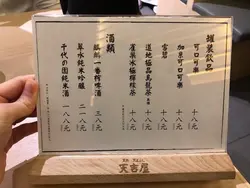 罐裝飲品
可口可樂 十八元
加系可口可樂 十八元
雪碧 十八元
道地極品烏龍茶 十八元
雀巢冰極檸檬茶 十八元
酒類
麒麟一番搾啤酒 三八元
翠水純米吟釀 二一八元
千代の園純米酒 一八八元
天吉屋